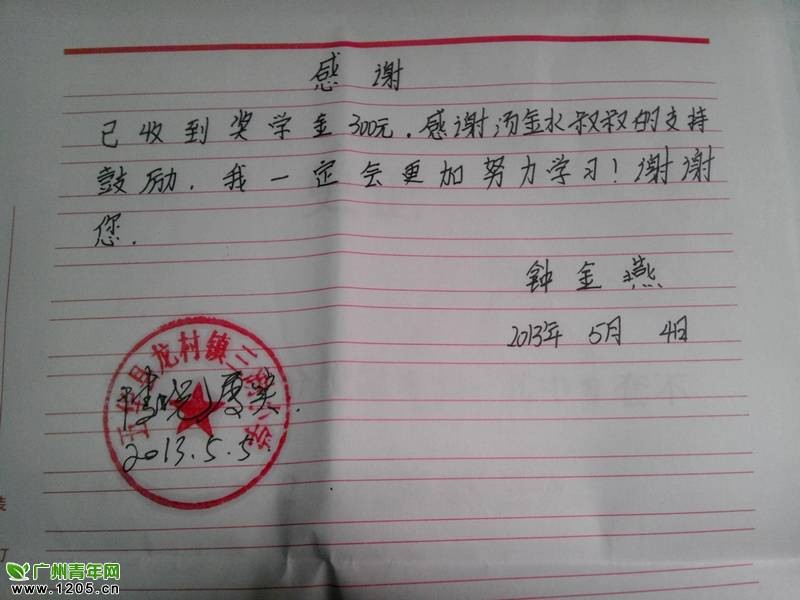 感谢
已收到奖学金300元.感谢汤金水叔叔的支持
鼓励.我一定会更加努力学习!谢谢
您.
钟金燕
2013年 5月 4日
五华县龙村镇三
情况属实.
2013.5.5
广州青年网
www.1205.cn